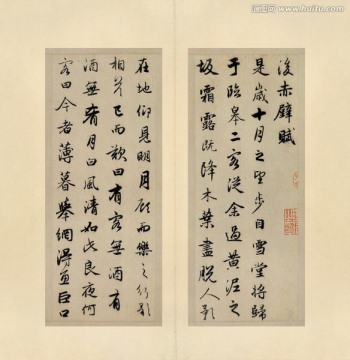 後赤壁賦
是歲十月之望步自雪堂將歸
于臨皋二客從余過黃泥之
坂霜露既降木葉盡脫人影
在地仰見明月顧而樂之行歌
相答已而歎曰有客無酒有
酒無肴月白風清如此良夜何
客曰今者薄暮舉網得魚巨口
www.huitu.com